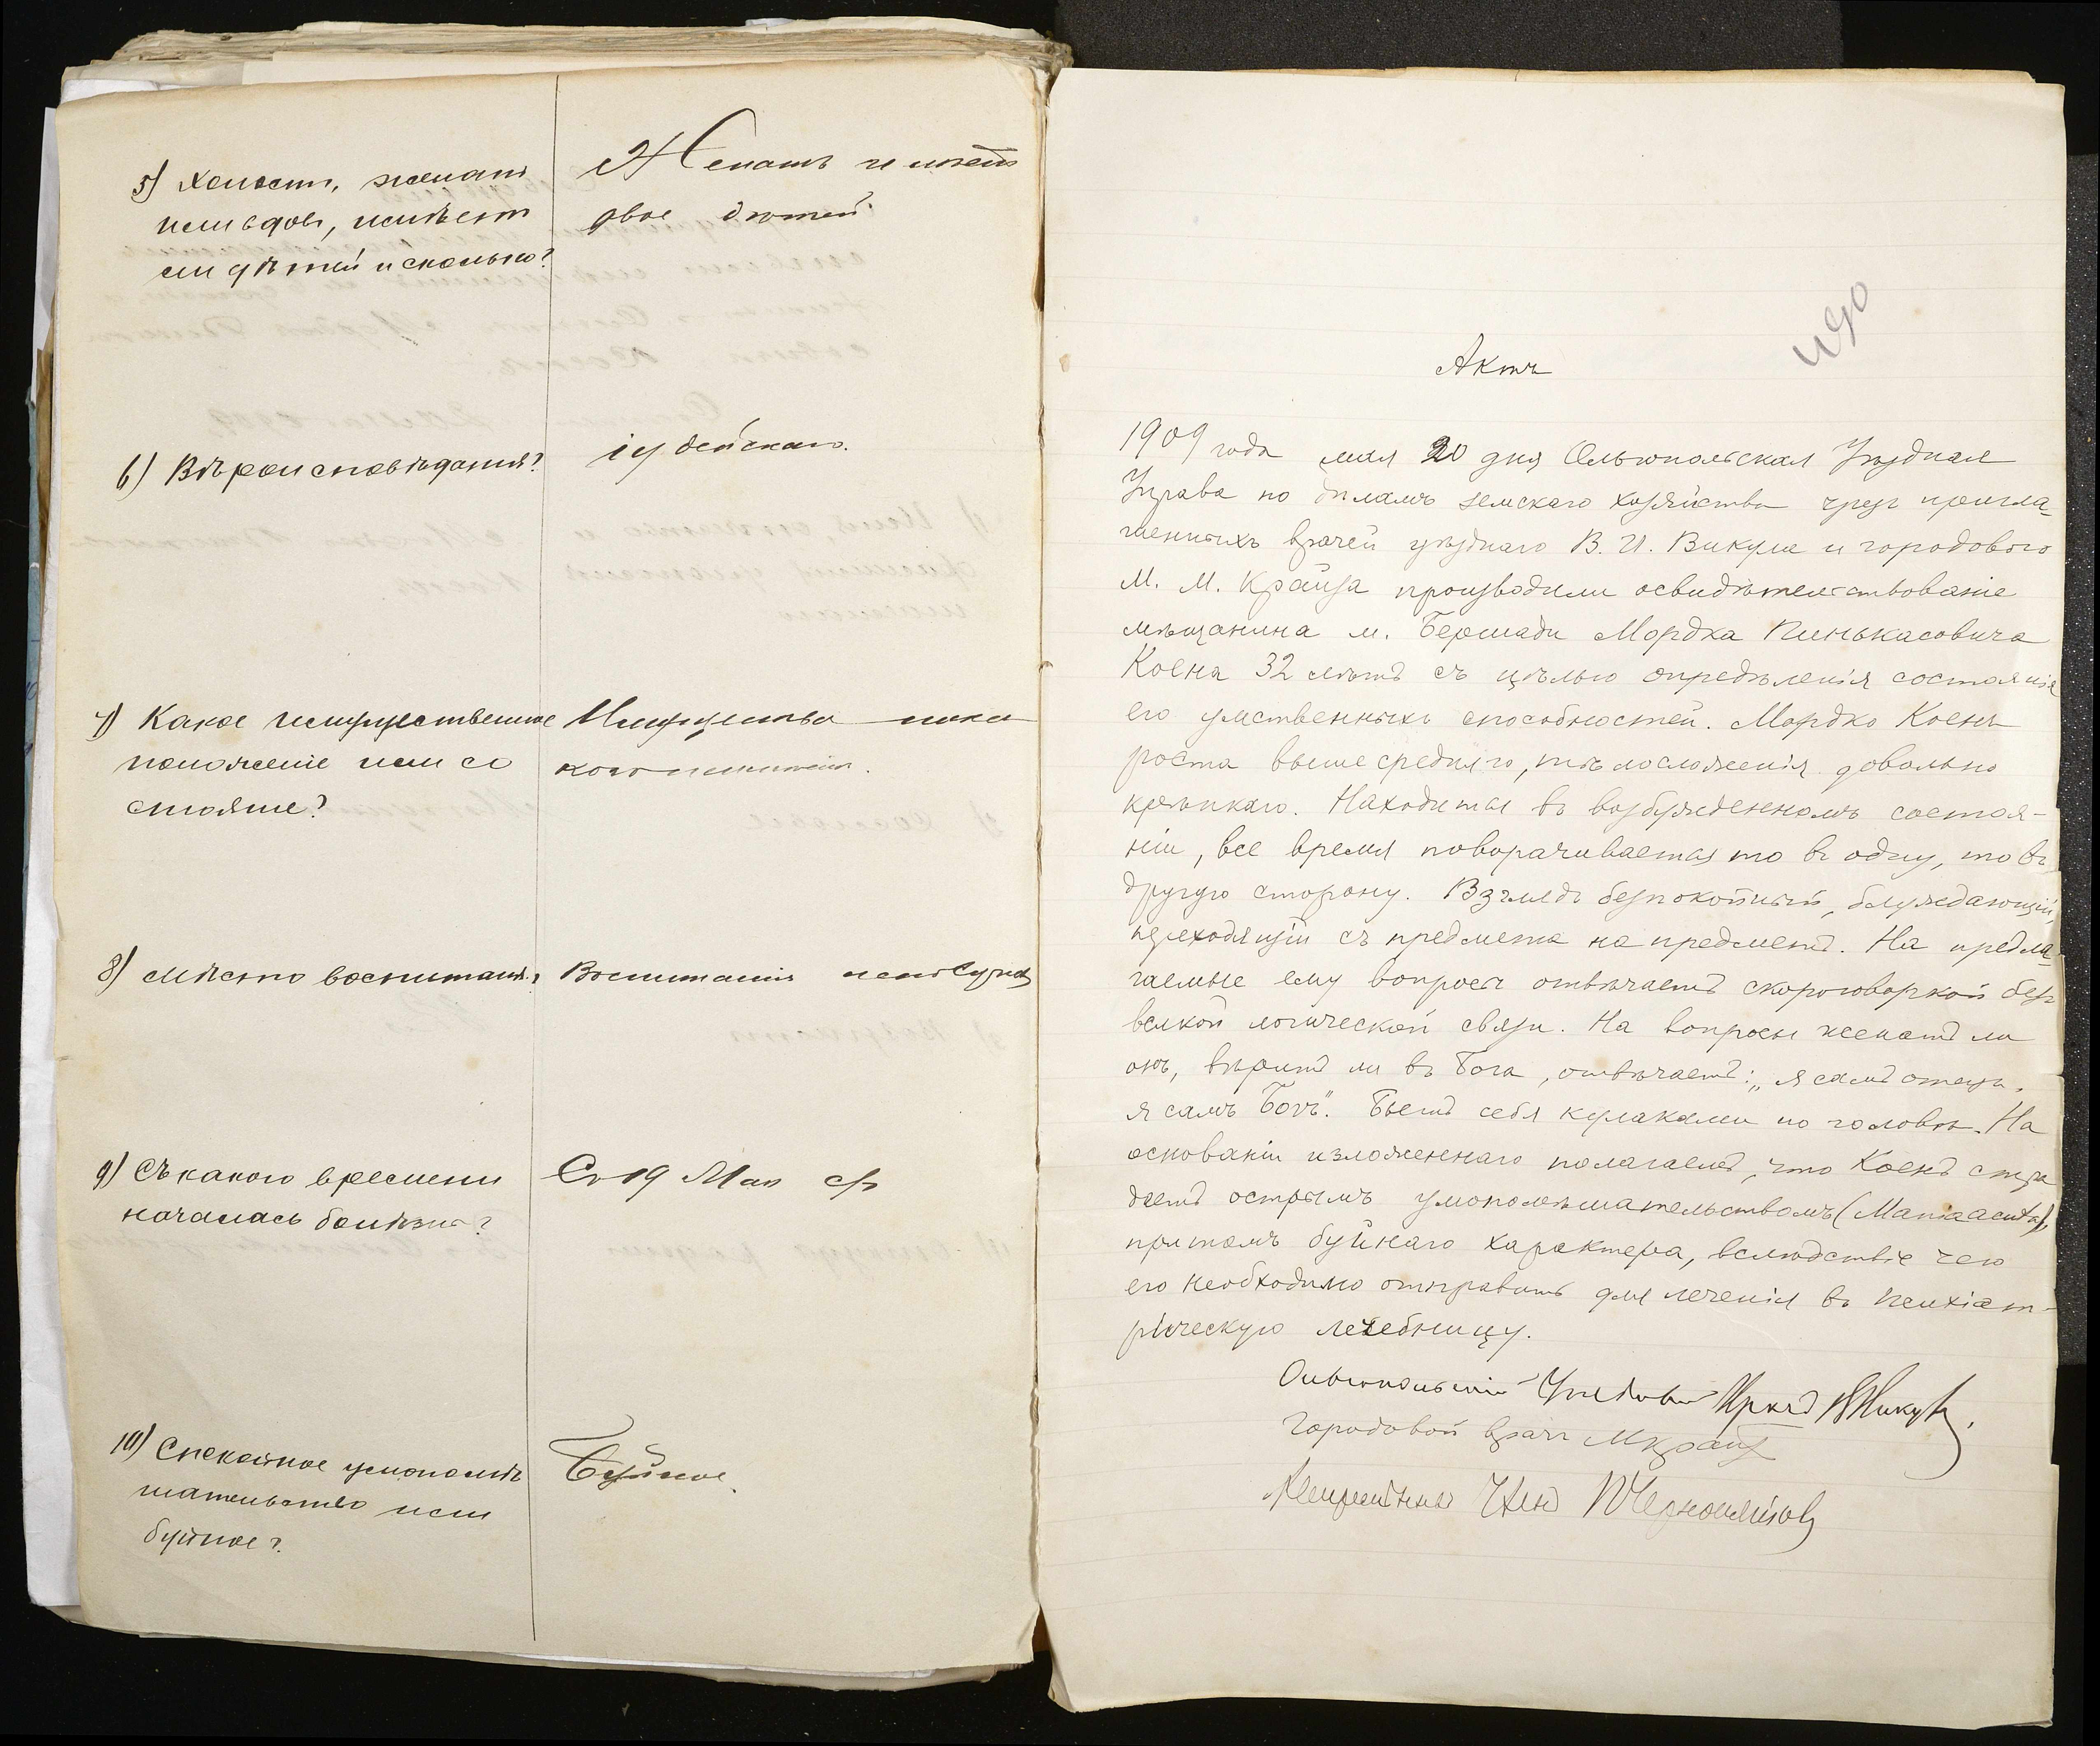 5) Холостъ, женатъ
или вдовъ, имѣетъ
ли дѣтей и сколько?
Женатъ имѣетъ
двое дѣтей
6) Вѣроисповѣданія?
іудейскаго.
7) Какое имущественное
положеніе или со
стояніе?
Имущества ника
кого не имѣетъ.
8) Мѣсто воспитанія?
Воспитанія не получ
9) Съ какого времени
началась болѣзнь?
Съ 19 Мая
10) Спокойное умопомѣ
шательство или
буйное?
Буйное.
Актъ
1909 года мая 20 дня Ольгопольская Уѣздная
Управа по дѣламъ земскаго хозяйства чрезъ пригла=
шенныхъ врачей уѣзднаго В. И. Викула и городового
М. М. Крайза производили освидѣтельствованіе
мѣщанина м. Бершади Мордка Пинькасовича
Коена 32 лѣтъ съ цѣлью опредѣленія состоянія
его умственныхъ способностей. Мордко Коенъ
роста выше средняго, тѣлосложенія довольно
крѣпкаго. Находится въ возбужденномъ состоя-
ніи, все время поворачивается то въ одну, то въ
другую сторону. Взглядъ безпокойный, блуждающій,
переходящій съ предмета на предметъ. На предла=
гаемые ему вопросы отвѣчаетъ скороговоркой безъ
всякой логической связи. На вопросы женатъ ли
онъ, вѣритъ ли въ Бога, отвѣчаетъ: „я самъ отецъ,
я самъ Богъ". Бьетъ себя кулаками по головѣ. На
основаніи изложеннаго полагаемъ, что Коенъ стра
даетъ острымъ умопомѣшательствомъ (Mania acuta),
притомъ буйнаго характера, вслѣдствіе чего
его необходимо отправить для леченія въ психіат-
рическую лечебницу.
Ольгопольскій Уѣздный Врачъ
Городовой врачъ М Крайз
Непремѣнный Членъ